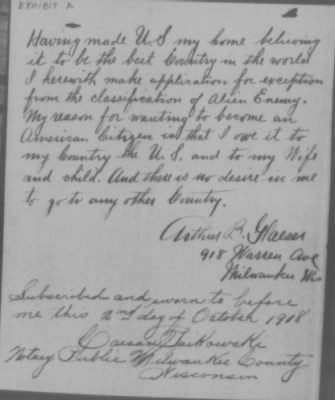 EXHIBIT A
Having made U.S my home believing
it to be the best Country in the world
I herewith make application for exception
from the classification of Alien Enemy.
My reason for wanting to become an
American Citizen is that I owe it to
my Country the U.S. and to my Wife
and child. And there is no desire in me
to go to any other Country.
Arthur B. Glaeser
918 Warren Ave
Milwaukee Wis
Subscribed and sworn to before
me this 2nd day of October 1918
Notary Public Milwaukee County
Wisconsin